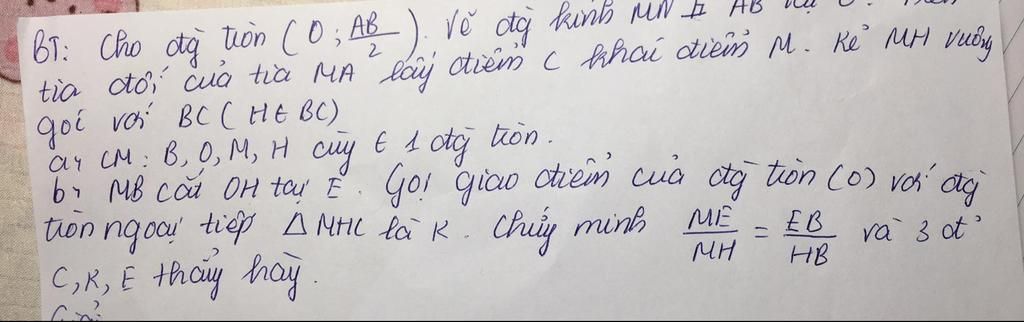 BT: Cho đg tròn (O; AB/2). Vẽ đg kính MN ⊥ AB tại O. Trên
tia đối của tia MA lấy điểm C khác điểm M. Kẻ MH vuông
góc với BC (H ∈ BC)
a, CM: B, O, M, H cùg ∈ 1 đg tròn.
b, MB cắt OH tại E. Gọi giao điểm của đg tròn (O) với đg
tròn ngoại tiếp △ MHC là K. Chứg minh ME/MH = EB/HB và 3 đ'
C, K, E thẳg hàg.